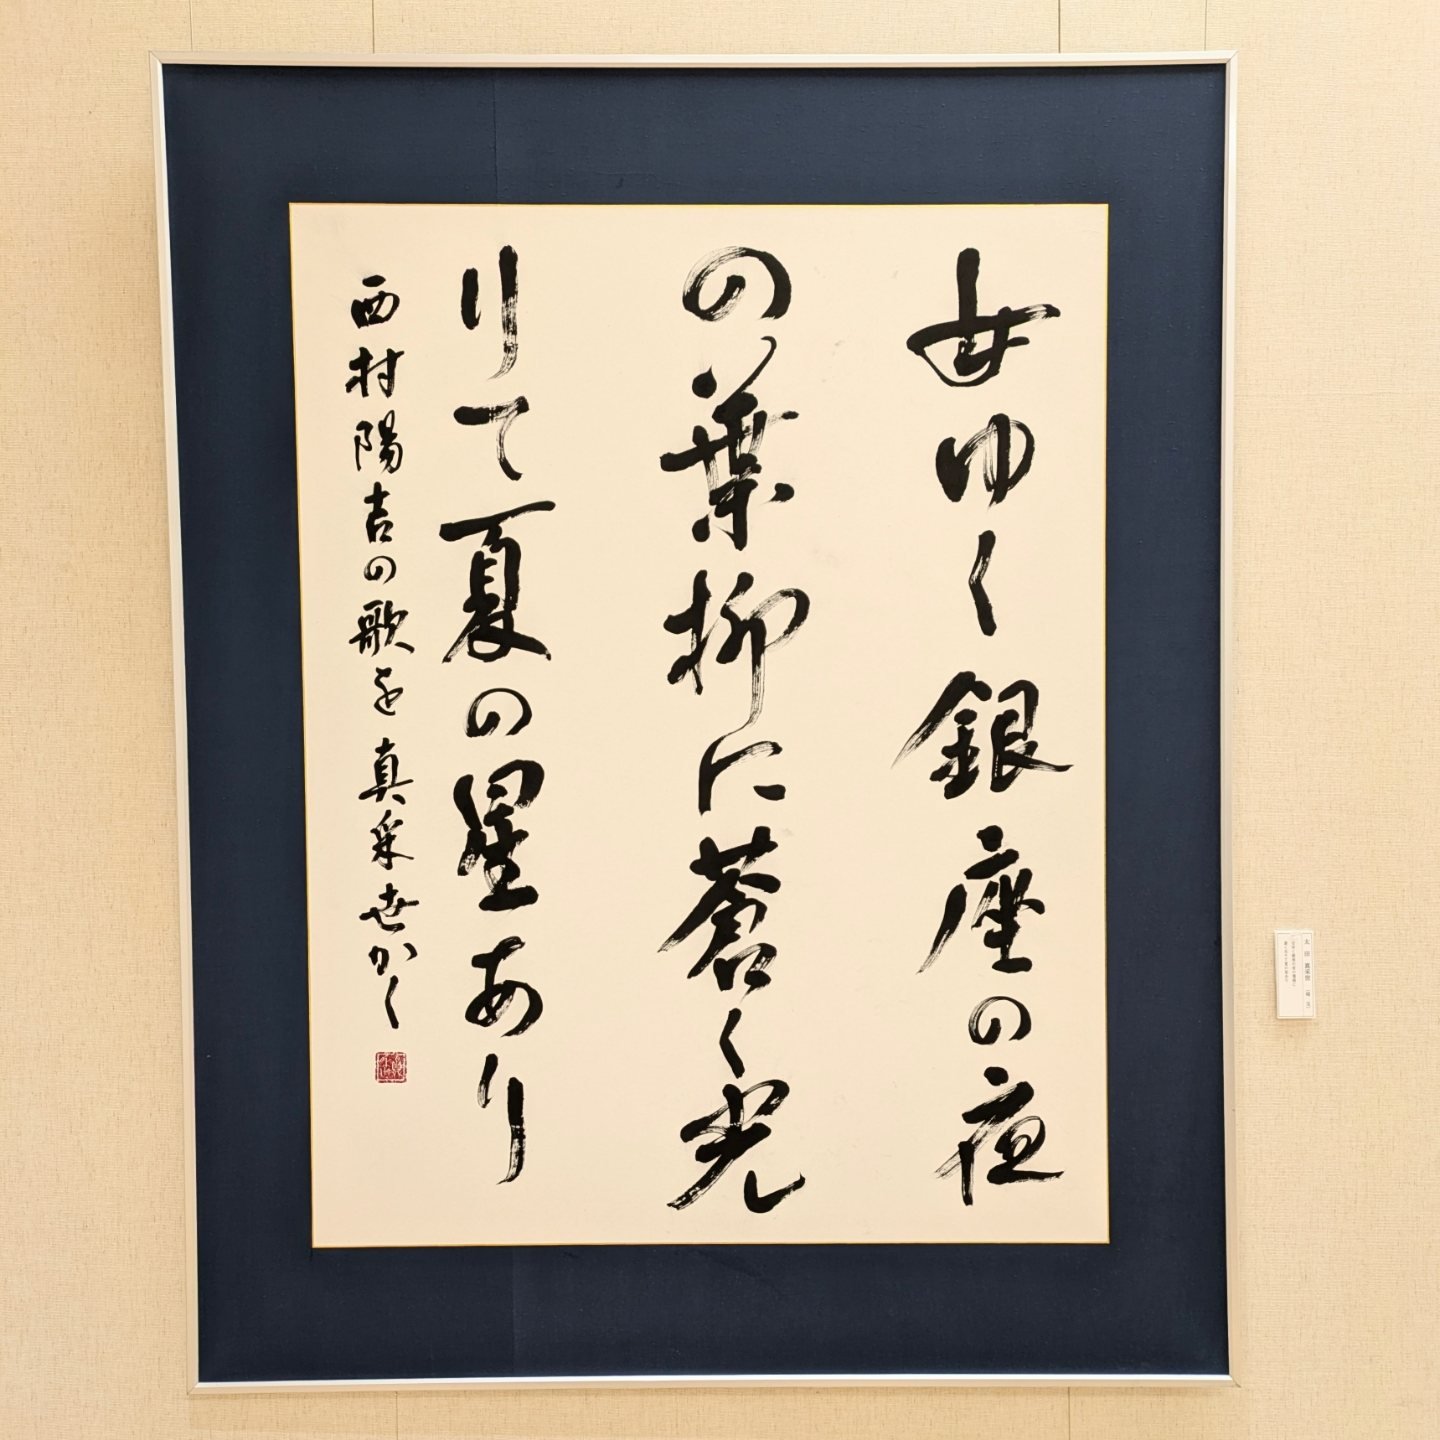 女ゆく銀座の夜
の葉柳に蒼く光
りて夏の星あり
西村陽吉の歌を 真采世かく